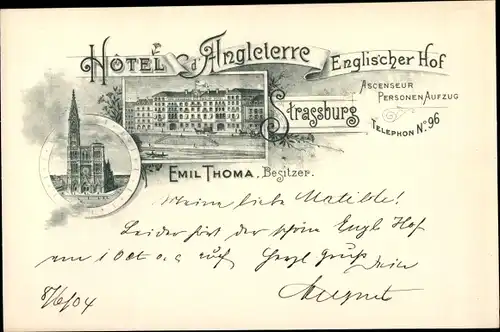 HÔTEL d'Angleterre
Englischer Hof
Ascenseur
Personen Aufzug
Strassburg
Telephon No. 96
Emil Thoma, Besitzer.
Meine liebe Matilde!
Leider hört der schöne Engl Hof
am 1 Oct a. c. auf Herzl Gruß
Dein
August
8/6/04